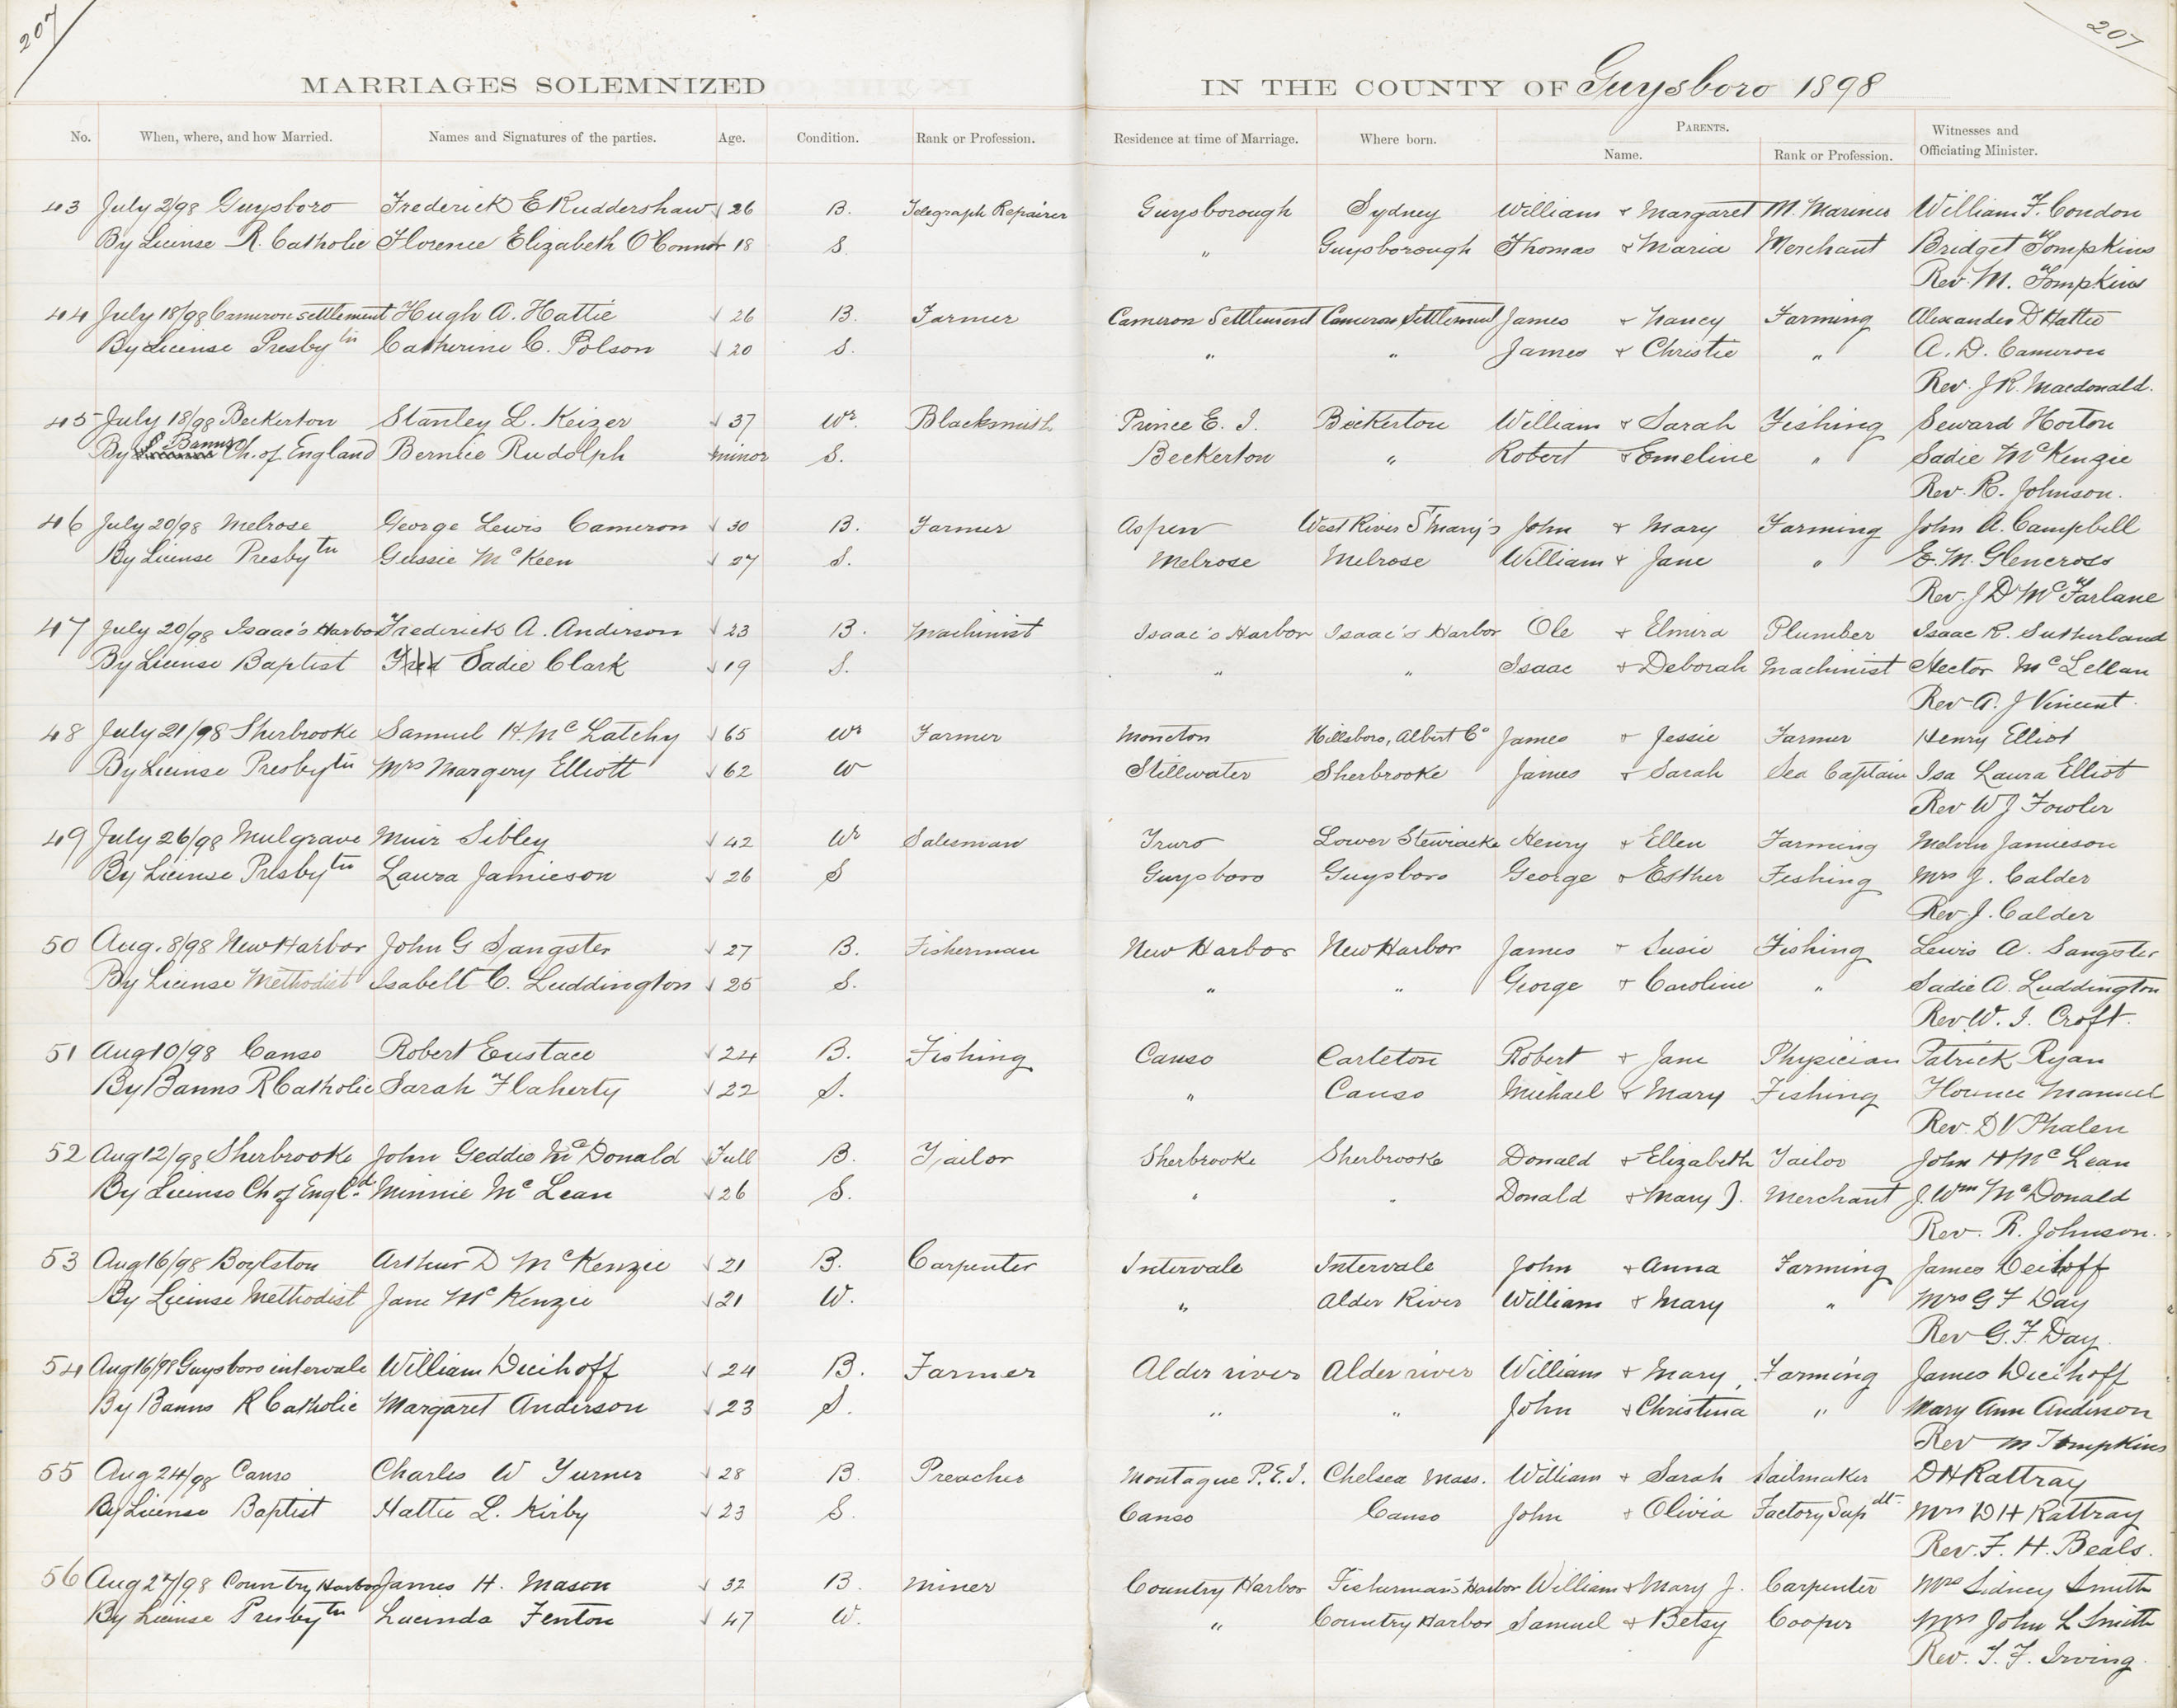 207
207
MARRIAGES SOLEMNIZED IN THE COUNTY OF Guysboro 1898
No. When, where, and how Married. Names and Signatures of the parties. Age. Condition. Rank or Profession. Residence at time of Marriage. Where born. PARENTS. Witnesses and
Name. Rank or Profession. Officiating Minister.
43 July 2/98 Guysboro Frederick E Ruddershaw 26 B. Telegraph Repairer Guysborough Sydney William & Margaret M. Mariner William F. Condon
By License R. Catholic Florence Elizabeth O'Connor 18 S. " Guysborough Thomas & Maria Merchant Bridget Tompkins
Rev. M. Tompkins
44 July 18/98 Cameron settlement Hugh A. Hattie 26 B. Farmer Cameron Settlement Cameron Settlement James & Nancy Farming Alexander D Hattie
By License Presbytn Catherine C. Polson 20 S. " " James & Christie " A. D. Cameron
Rev. J R. Macdonald.
45 July 18/98 Beckerton Stanley L. Keizer 37 Wr. Blacksmith Prince E. I. Beckerton William & Sarah Fishing Seward Horton
By Banns Ch. of England Bernlie Rudolph minor S. Beckerton " Robert & Emeline " Sadie McKenzie
Rev. R. Johnson.
46 July 20/98 Melrose George Lewis Cameron 30 B. Farmer Aspen West River St Mary's John & Mary Farming John A. Campbell
By License Presbytn Gussie McKeen 27 S. Melrose Melrose William & Jane " E. M. Glencross
Rev. J D McFarlane
47 July 20/98 Isaac's Harbor Frederick A. Anderson 23 B. Machinist Isaac's Harbor Isaac's Harbor Ole & Elmira Plumber Isaac R. Sutherland
By License Baptist Fred Sadie Clark 19 S. " " Isaac & Deborah Machinist Hector McLellan
Rev A. J Vincent.
48 July 21/98 Sherbrooke Samuel H. McLatchy 65 Wr Farmer Moncton Hillsboro, Albert Co James & Jessie Farmer Henry Elliot
By License Presbytn Mrs Margery Elliott 62 W Stillwater Sherbrooke James & Sarah Sea Captain Isa Laura Elliot
Rev W J Fowler
49 July 26/98 Mulgrave Muir Sibley 42 Wr Salesman Truro Lower Stewiacke Henry & Ellen Farming Melvin Jamieson
By License Presbytn Laura Jamieson 26 S Guysboro Guysboro George & Esther Fishing Mrs J. Calder
Rev. J. Calder
50 Aug. 8/98 New Harbor John G Sangster 27 B. Fisherman New Harbor New Harbor James & Susie Fishing Lewis A. Sangster
By License Methodist Isabell C. Luddington 25 S. " " George & Caroline " Sadie A. Luddington
Rev. W. I. Croft.
51 Aug 10/98 Canso Robert Eustace 24 B. Fishing Canso Carleton Robert & Jane Physician Patrick Ryan
By Banns R Catholic Sarah Flaherty 22 S. " Canso Michael & Mary Fishing Florence Manuel
Rev. D V Phalen
52 Aug 12/98 Sherbrooke John Geddie McDonald Full B. Tailor Sherbrooke Sherbrooke Donald & Elizabeth Tailor John H McLean
By License Ch of Engld. Minnie McLean 26 S. " " Donald & Mary J. Merchant J. Wm McDonald
Rev. R. Johnson.
53 Aug 16/98 Boylston Arthur D McKenzie 21 B. Carpenter Intervale Intervale John & Anna Farming James Deihoff
By License Methodist Jane McKenzie 21 W. " Alder River William & Mary " Mrs G F Day
Rev G. F. Day.
54 Aug 16/98 Guysboro intervale William Deihoff 24 B. Farmer Alder river Alder river William & Mary Farming James Deihoff
By Banns R Catholic Margaret Anderson 23 S. " " John & Christina " Mary Ann Anderson
Rev M Tompkins
55 Aug 24/98 Canso Charles W Turner 28 B. Preacher Montague P.E.I. Chelsea Mass. William & Sarah Sailmaker D H Rattray
By License Baptist Hattie L. Kirby 23 S. Canso Canso John & Olivia Factory Supdt. Mrs D H Rattray
Rev. F. H. Beals.
56 Aug 27/98 Country Harbor James H. Mason 32 B. Miner Country Harbor Fisherman's Harbor William & Mary J. Carpenter Mrs Sidney Smith
By License Presbytn Lucinda Fenton 47 W. " Country Harbor Samuel & Betsy Cooper Mrs John L Smith
Rev. T. F. Irving.